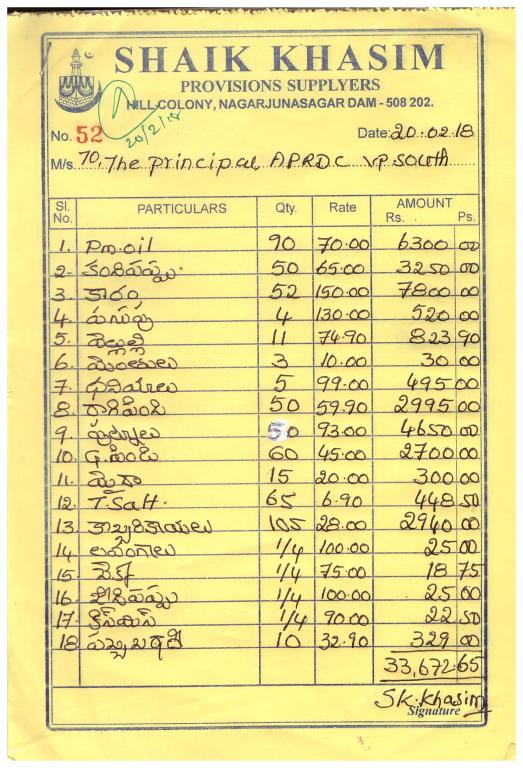 SHAIK KHASIM
PROVISIONS SUPPLYERS
HILL COLONY, NAGARJUNASAGAR DAM - 508 202.
20/2/18
No. 52 Date: 20.02.18
M/s To, The principal, APRDC VP South
Sl. No. PARTICULARS Qty. Rate AMOUNT Rs. Ps.
1. Pm.oil 90 70.00 6300 00
2. కందిపప్పు. 50 65.00 3250 00
3. కారం 52 150.00 7800 00
4. పసుపు 4 130.00 520 00
5. 11 74.90 823 90
6. మెంతులు 3 10.00 30 00
7. ధనియాలు 5 99.00 495 00
8. రాగిపిండి 50 59.90 2995 00
9. 50 93.00 4650 00
10. G.పిండి 60 45.00 2700 00
11. మైదా 15 20.00 300 00
12. T.Salt. 65 6.90 448 50
13. కొబ్బరికాయలు 105 28.00 2940 00
14 లవంగాలు 1/4 100.00 25 00
15 చెక్క 1/4 75.00 18 75
16. జీడిపప్పు 1/4 100.00 25 00
17. కిస్మిస్ 1/4 90.00 22 50
18 10 32.90 329 00
33,672.65
SK.Khasim
Signature